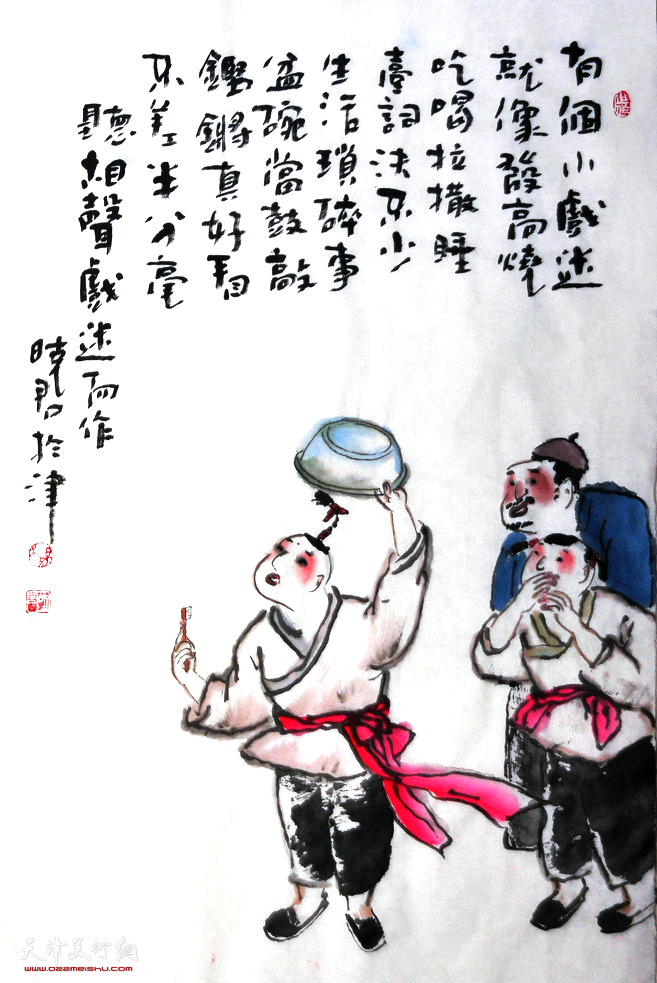 有個小戲迷
就像發高燒
吃喝拉撒睡
臺詞決不少
生活瑣碎事
盆碗當鼓敲
鏗鏘真好看
不差半分毫
聽相聲戲迷而作
晓君於津
天津美術網
www.022meishu.com